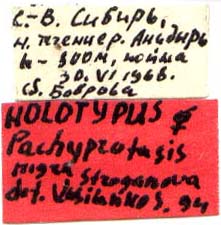 С.-В. Сибирь,
н. течение р. Анадырь
h- 300м, пойма
30.VI 1968.
сб. Боброва
HOLOTYPUS ♀
Pachyprotasis
nigra Stroganova
det. Vasilenko S. 94